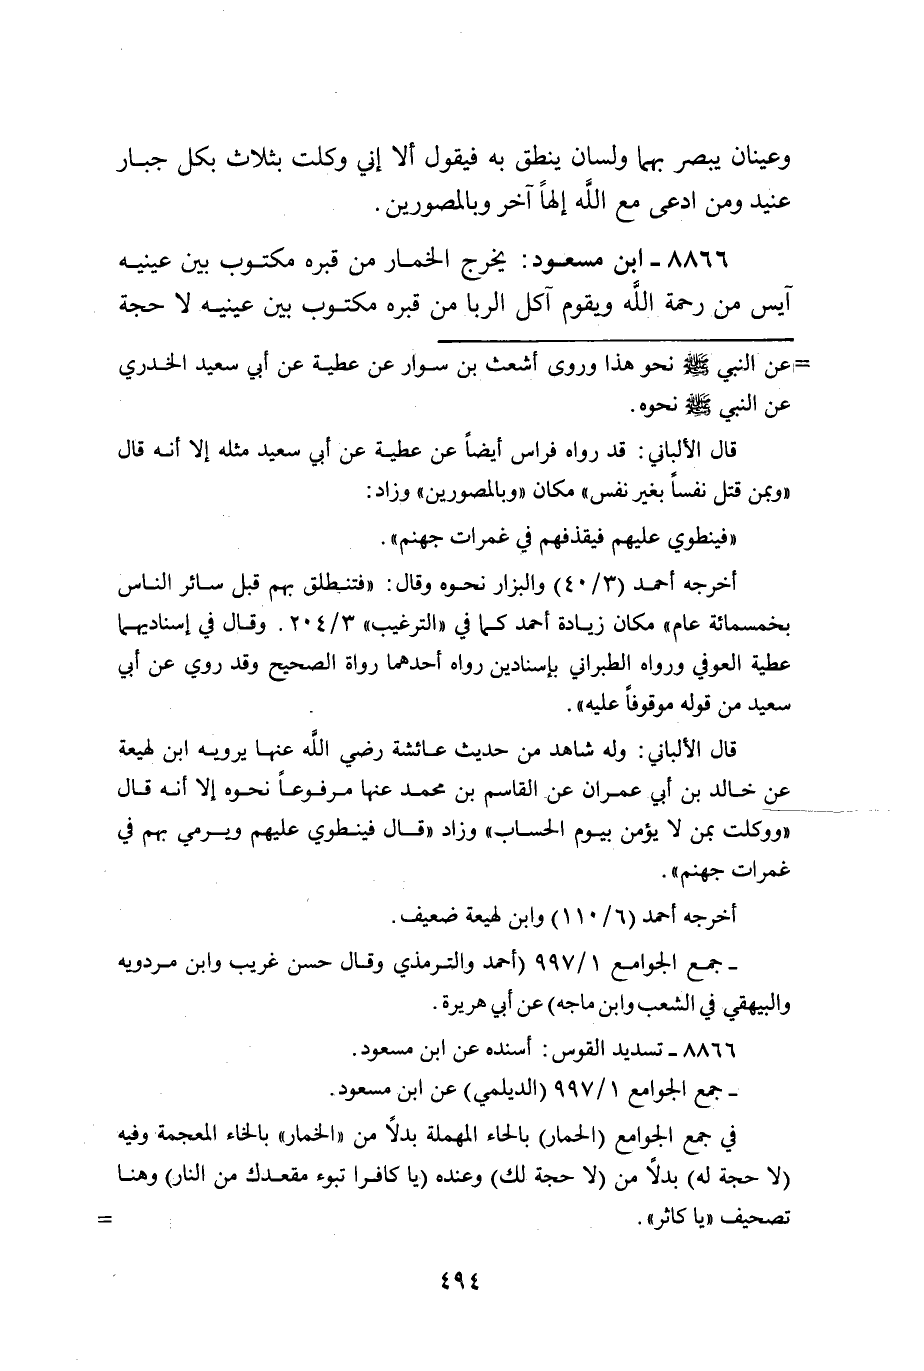 وعينان يبصر بهما ولسان ينطق به فيقول ألا إني وكلت بثلاث بكل جبار
عنيد ومن ادعى مع اللَّه إلهاً آخر وبالمصورين .
٨٨٦٦ ـ ابن مسعود : يخرج الخمار من قبره مكتوب بين عينيه
آيس من رحمة اللَّه ويقوم آكل الربا من قبره مكتوب بين عينيه لا حجة
= عن النبي ﷺ نحو هذا وروى أشعث بن سوار عن عطية عن أبي سعيد الخدري
عن النبي ﷺ نحوه .
قال الألباني : قد رواه فراس أيضاً عن عطية عن أبي سعيد مثله إلا أنه قال
«وبمن قتل نفساً بغير نفس» مكان «وبالمصورين» وزاد :
«فينطوي عليهم فيقذفهم في غمرات جهنم» .
أخرجه أحمد (٤٠/٣) والبزار نحوه وقال : «فتنطلق بهم قبل سائر الناس
بخمسمائة عام» مكان زيادة أحمد كما في «الترغيب» ٢٠٤/٣ . وقال في إسناديهما
عطية العوفي ورواه الطبراني بإسنادين رواه أحدهما رواة الصحيح وقد روي عن أبي
سعيد من قوله موقوفاً عليه» .
قال الألباني : وله شاهد من حديث عائشة رضي اللَّه عنها يرويه ابن لهيعة
عن خالد بن أبي عمران عن القاسم بن محمد عنها مرفوعاً نحوه إلا أنه قال
«ووكلت بمن لا يؤمن بيوم الحساب» وزاد «قال فينطوي عليهم ويرمي بهم في
غمرات جهنم» .
أخرجه أحمد (١١٠/٦) وابن لهيعة ضعيف .
ـ جمع الجوامع ٩٩٧/١ (أحمد والترمذي وقال حسن غريب وابن مردويه
والبيهقي في الشعب وابن ماجه) عن أبي هريرة .
٨٨٦٦ ـ تسديد القوس : أسنده عن ابن مسعود .
ـ جمع الجوامع ٩٩٧/١ (الديلمي) عن ابن مسعود .
في جمع الجوامع (الحمار) بالحاء المهملة بدلاً من «الخمار» بالخاء المعجمة وفيه
(لا حجة له) بدلاً من (لا حجة لك) وعنده (يا كافرا تبوء مقعدك من النار) وهنا
تصحيف «يا كاثر» . =
٤٩٤